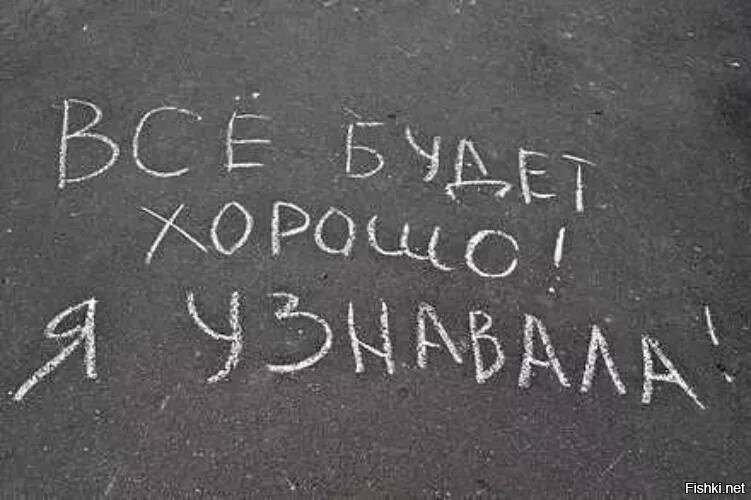 ВСЁ БУДЕТ
ХОРОШО!
Я УЗНАВАЛА!
Fishki.net